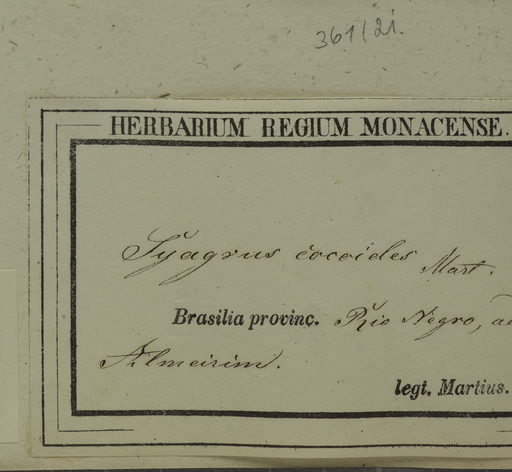 361/21.
HERBARIUM REGIUM MONACENSE.
Syagrus cocoides Mart.
Brasilia provinç. Rio Negro, ad
Almeirim.
legt. Martius.